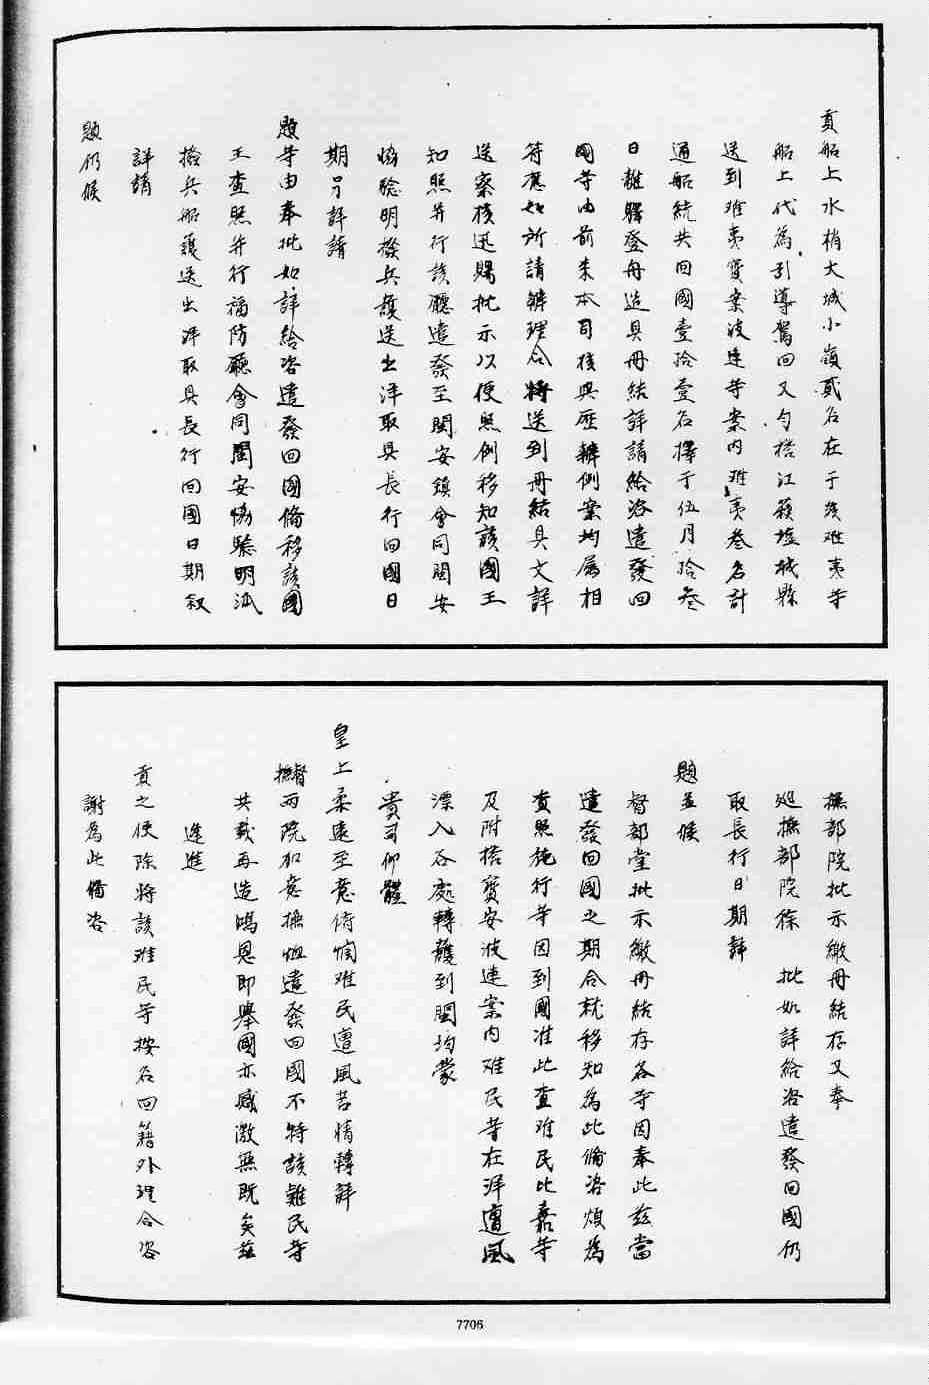 貢船上水梢大城小嶺貳名在于茂难夷等
船上代為引導駕回又勻搭江蘇塩城縣
送到难夷寶案波連等案内难夷叁名計
通船統共回國壹拾壹名擇于伍月拾叁
日離驛登舟造具冊結詳請給咨遣發回
國等由前来本司核與歷辦例案均属相
符應如所請辦理合將送到冊結具文詳
送察核迅賜批示以便照例移知該國王
知照并行該廳遣發至閩安鎮會同閩安
協驗明撥兵護送出洋取具長行回國日
期另詳請
題等由奉批如詳給咨遣發回國俻移該國
王查照并行福防廳會同閩安協驗明派
撥兵船護送出洋取具長行回國日期叙
詳請
題仍候
撫部院批示繳冊結存又奉
廵撫部院徐 批如詳給咨遣發回國仍
取長行日期詳
題並候
督部堂批示繳冊結存各等因奉此兹當
遣發回國之期合就移知為此俻咨煩為
查照施行等因到國准此查难民比嘉等
及附搭寶安波連案内难民昔在洋遭風
漂入各處轉護到閩均蒙
貴司仰體
皇上柔遠至意俯憫难民遭風苦情轉詳
督撫兩院加意撫恤遣發回國不特該難民等
共戴再造鴻恩即舉國亦感激無既矣兹
逢進
貢之便除將該难民等按名回籍外理合咨
謝為此俻咨
7706